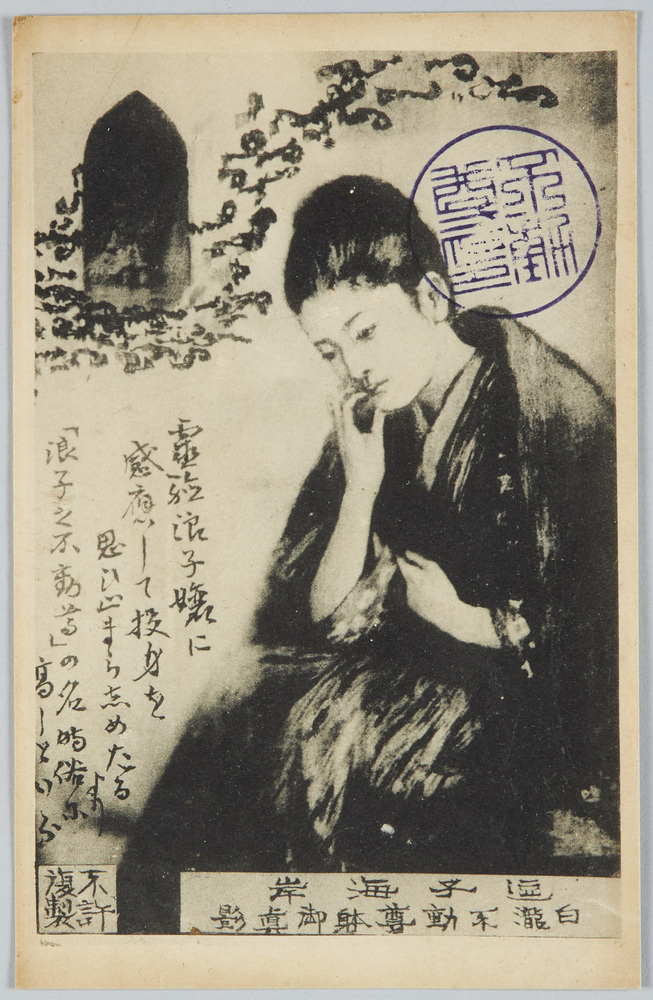 靈驗浪子孃に
感應して投身を
思ひ止まら志めたる
より
「浪子之不動尊」の名時俗に
高しといふ
逗子海岸
白瀧不動尊躰御眞影
不許
複製